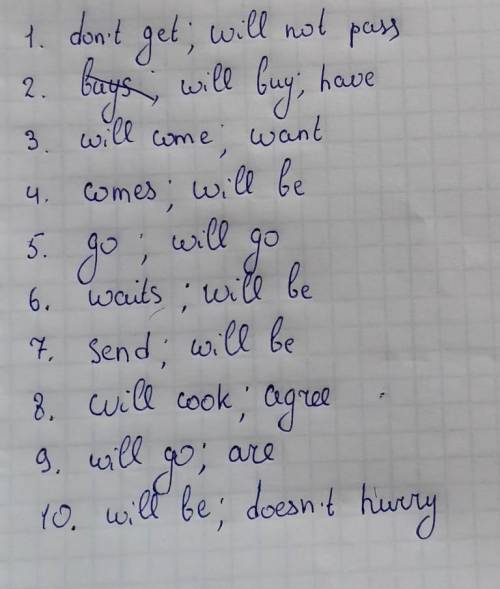 1. don't get; will not pass
2. buys; will buy; have
3. will come; want
4. comes; will be
5. go; will go
6. waits; will be
7. send; will be
8. will cook; agree
9. will go; are
10. will be; doesn't hurry